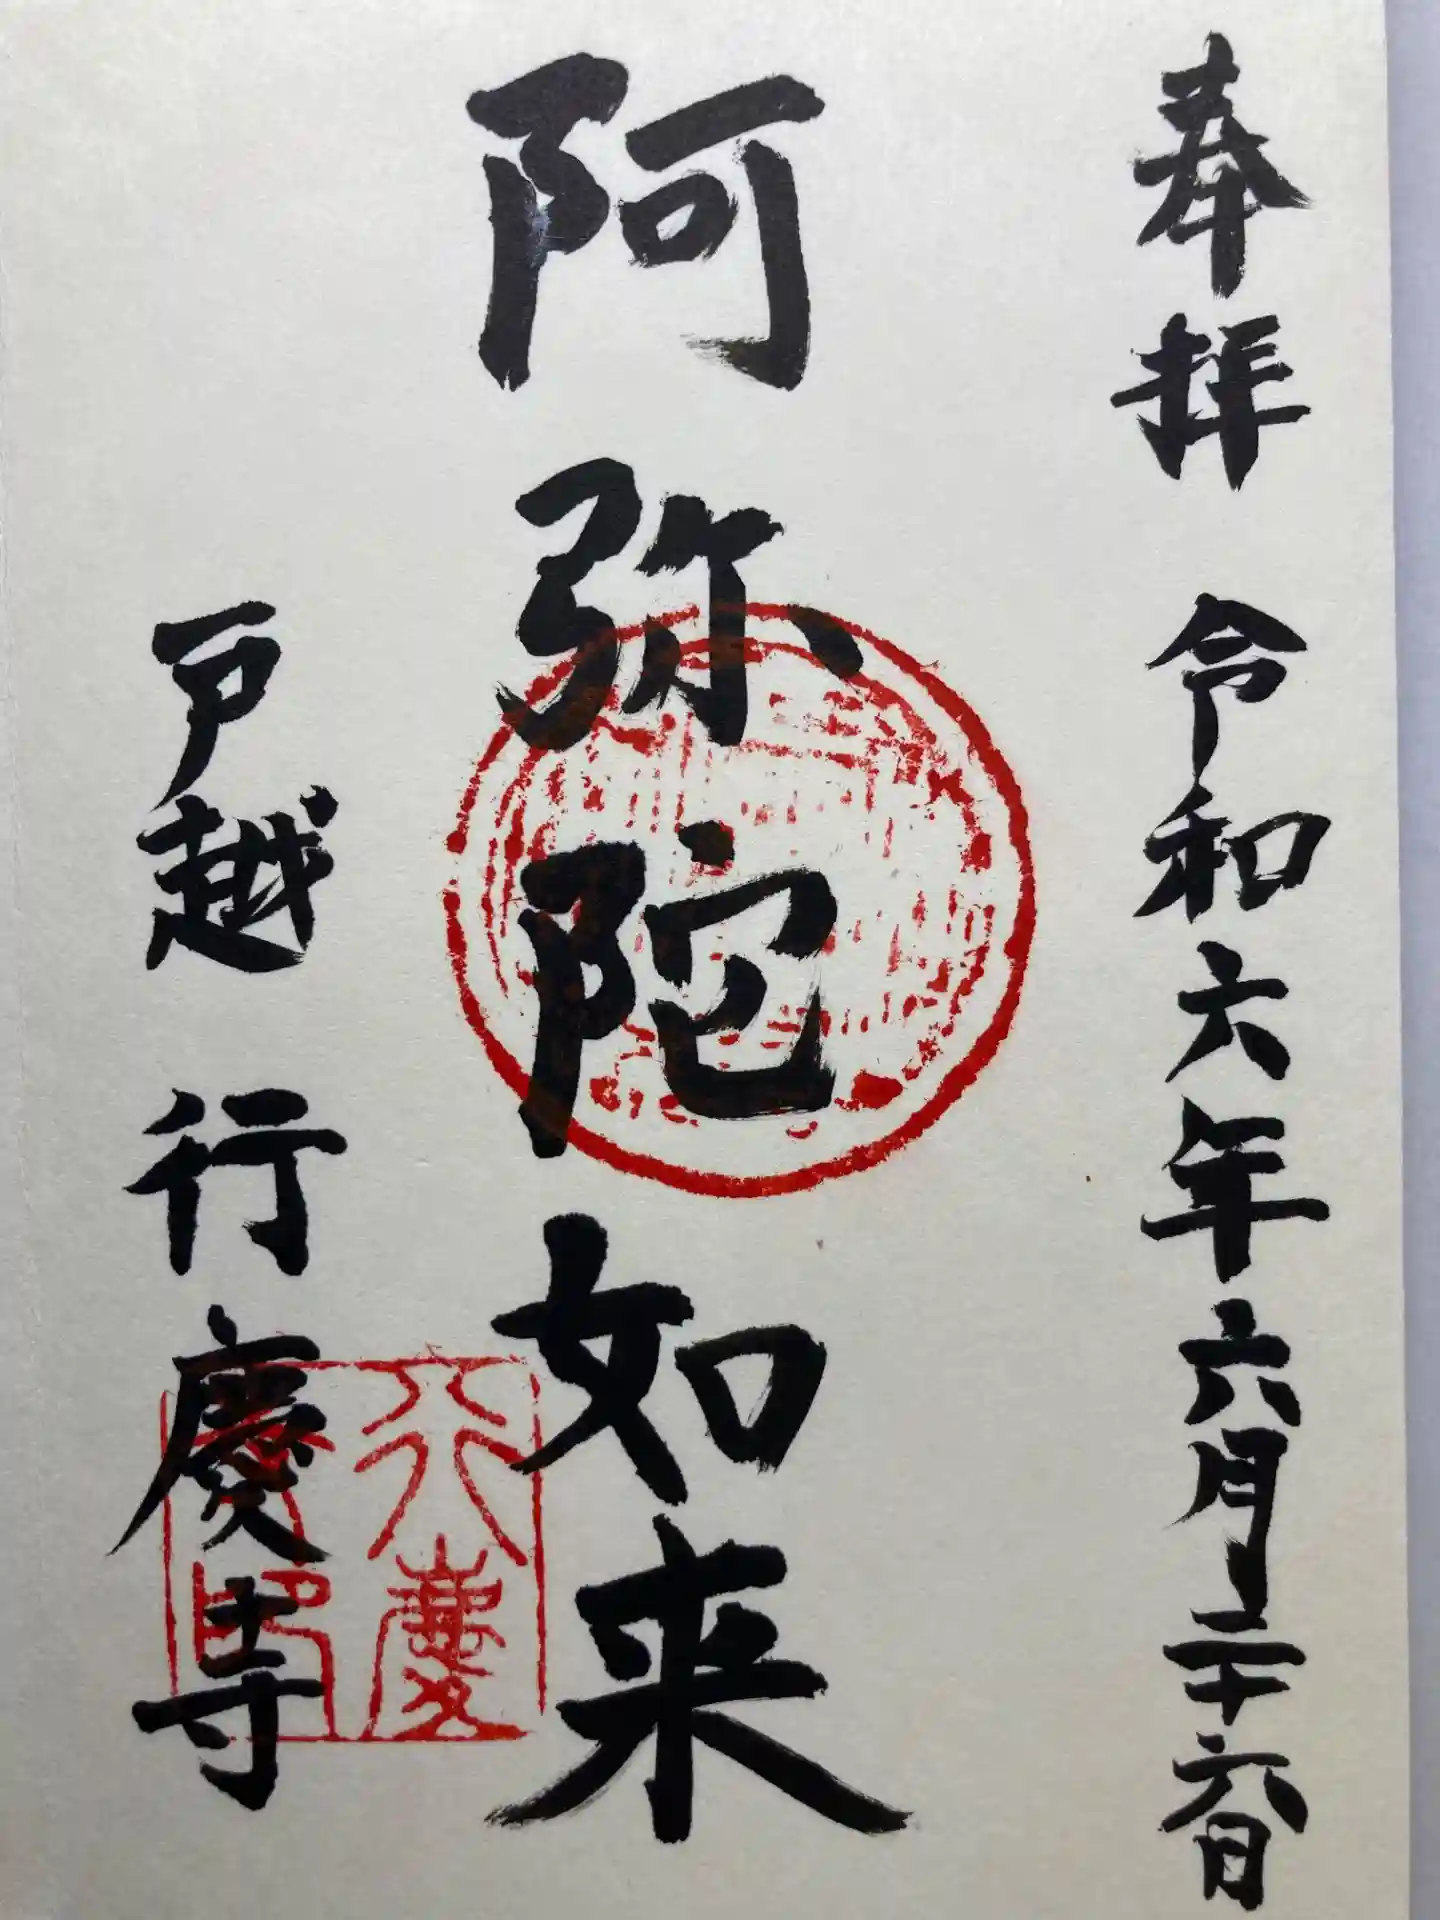 奉拝 令和六年六月二十六日
阿弥陀如来
戸越 行慶寺